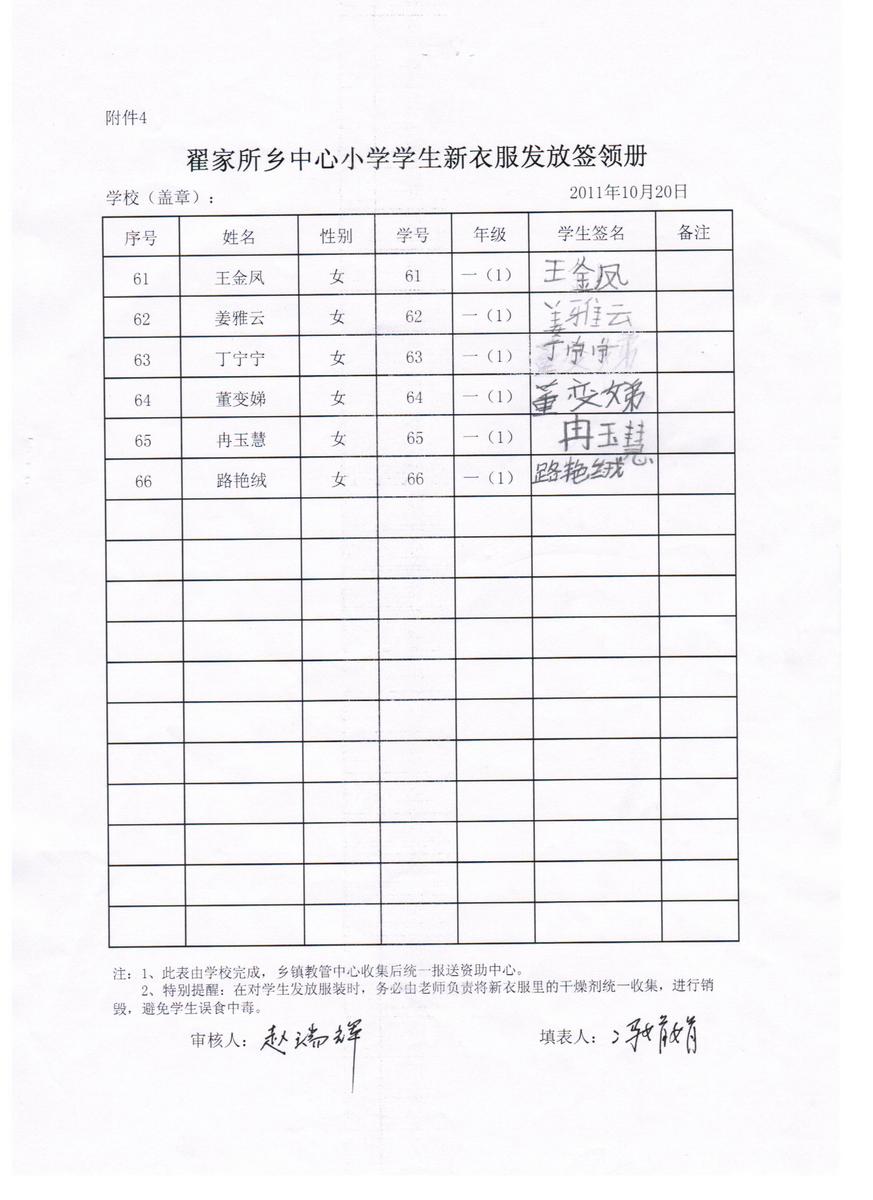 附件4
翟家所乡中心小学学生新衣服发放签领册
学校（盖章）： 2011年10月20日
序号 姓名 性别 学号 年级 学生签名 备注
61 王金凤 女 61 一（1） 王金凤
62 姜雅云 女 62 一（1） 姜雅云
63 丁宁宁 女 63 一（1） 丁宁宁
64 董变娣 女 64 一（1） 董变娣
65 冉玉慧 女 65 一（1） 冉玉慧
66 路艳绒 女 66 一（1） 路艳绒
注：1、此表由学校完成，乡镇教管中心收集后统一报送资助中心。
2、特别提醒：在对学生发放服装时，务必由老师负责将新衣服里的干燥剂统一收集，进行销
毁，避免学生误食中毒。
审核人：赵瑞辉 填表人：冯